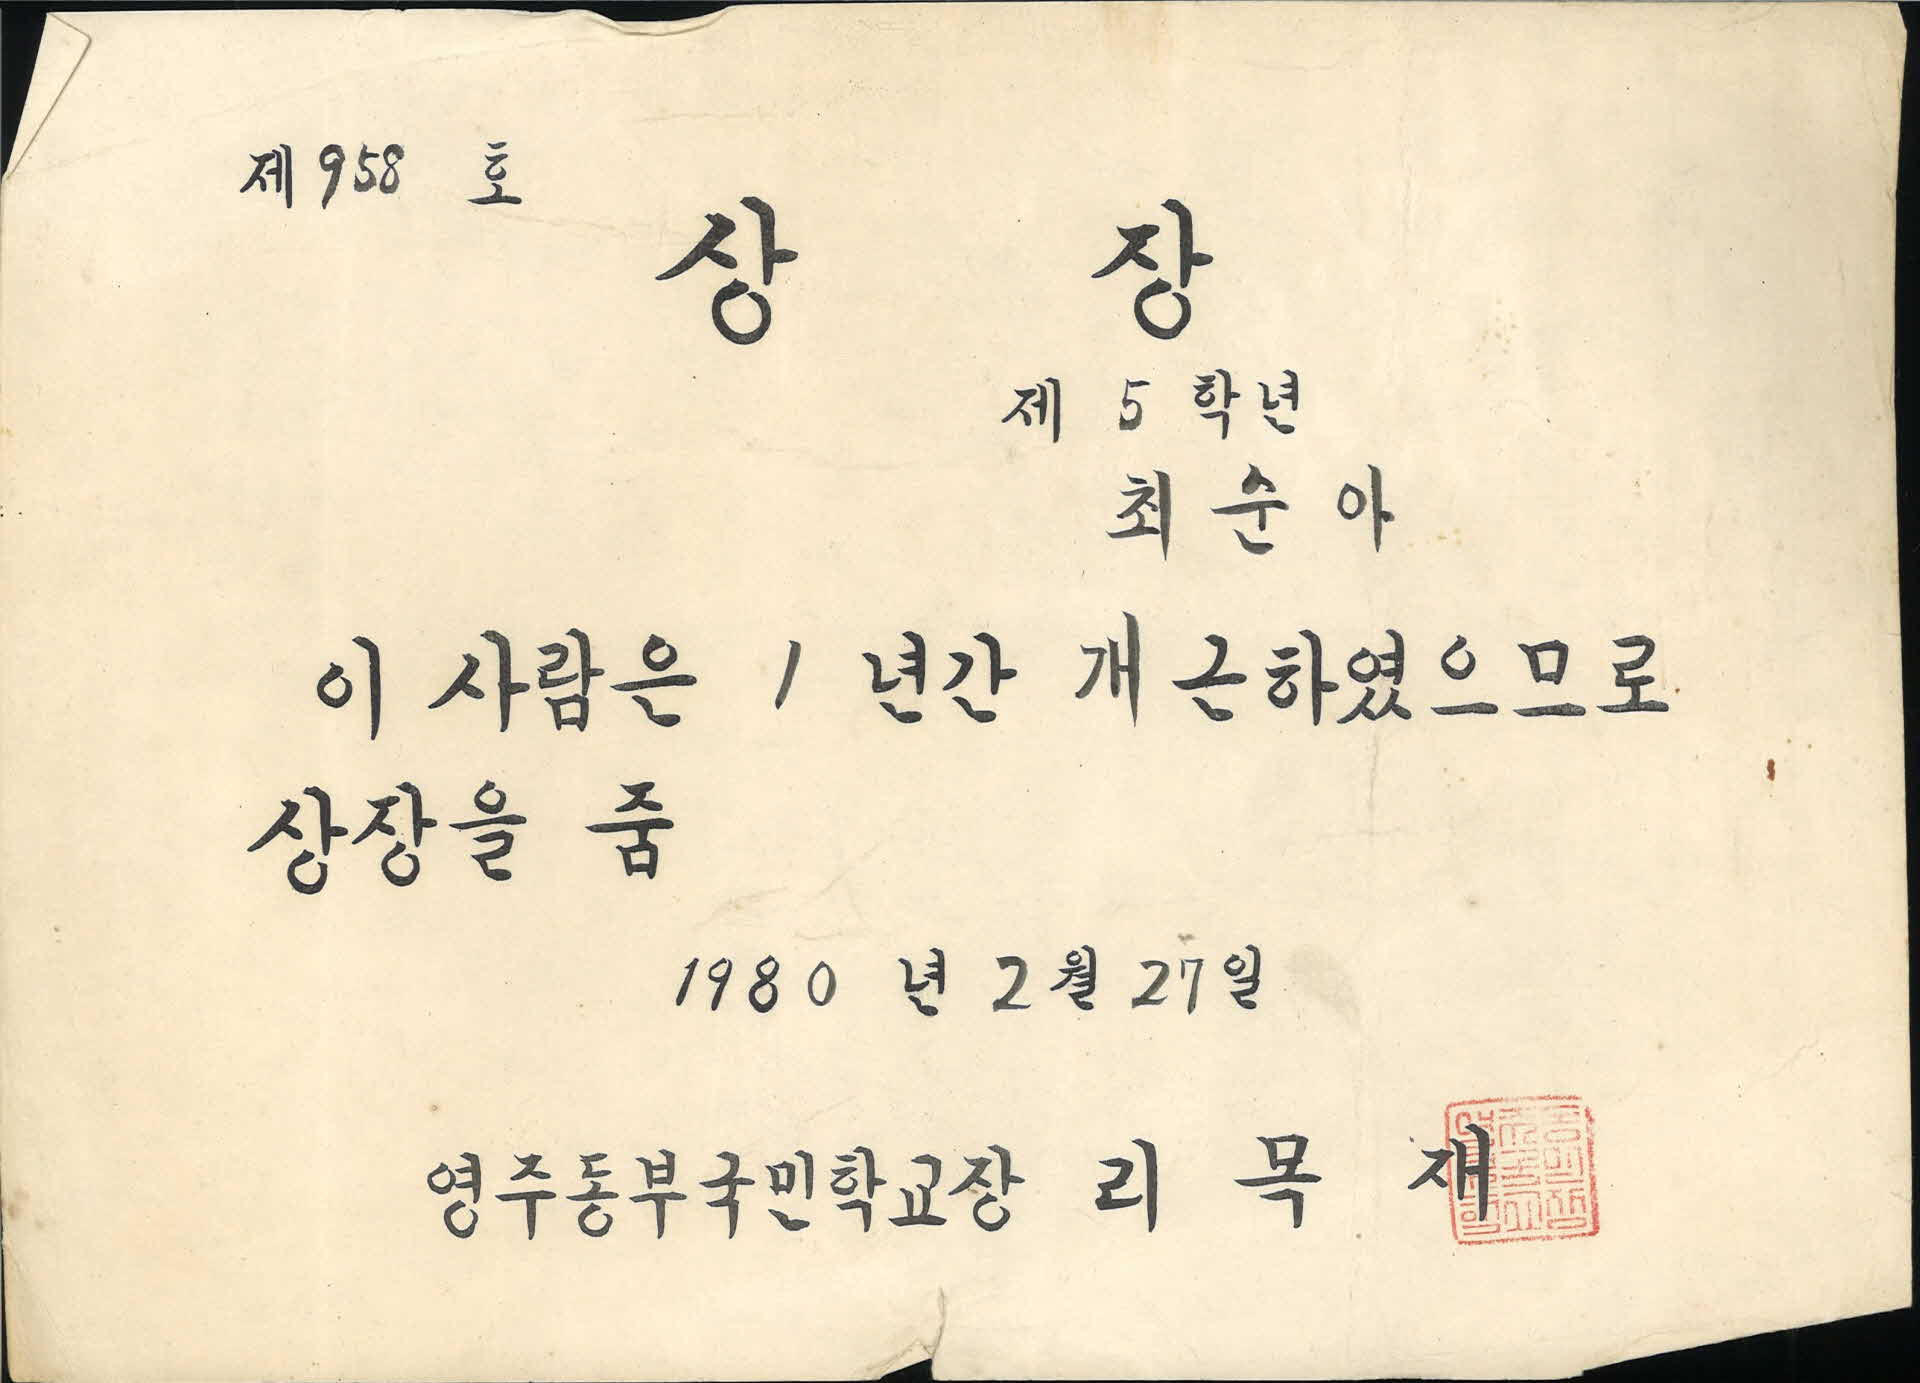 제 958 호
상 장
제 5 학년
최 순 아
이 사람은 1 년간 개근하였으므로
상장을 줌
1980 년 2월 27일
영주동부국민학교장 리 목 재